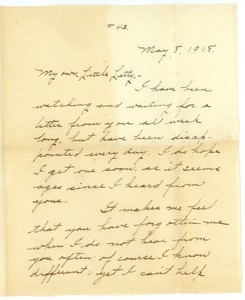 #43.
May 8, 1918.
My own Little Letty,-
I have been
watching and waiting for a
letter from you all week
long, but have been disap-
pointed every day. I do hope
I get one soon, as it seems
ages since I heard from
you.
It makes me feel
that you have forgotten me
when I do not hear from
you often, of course I know
different; yet I can't help